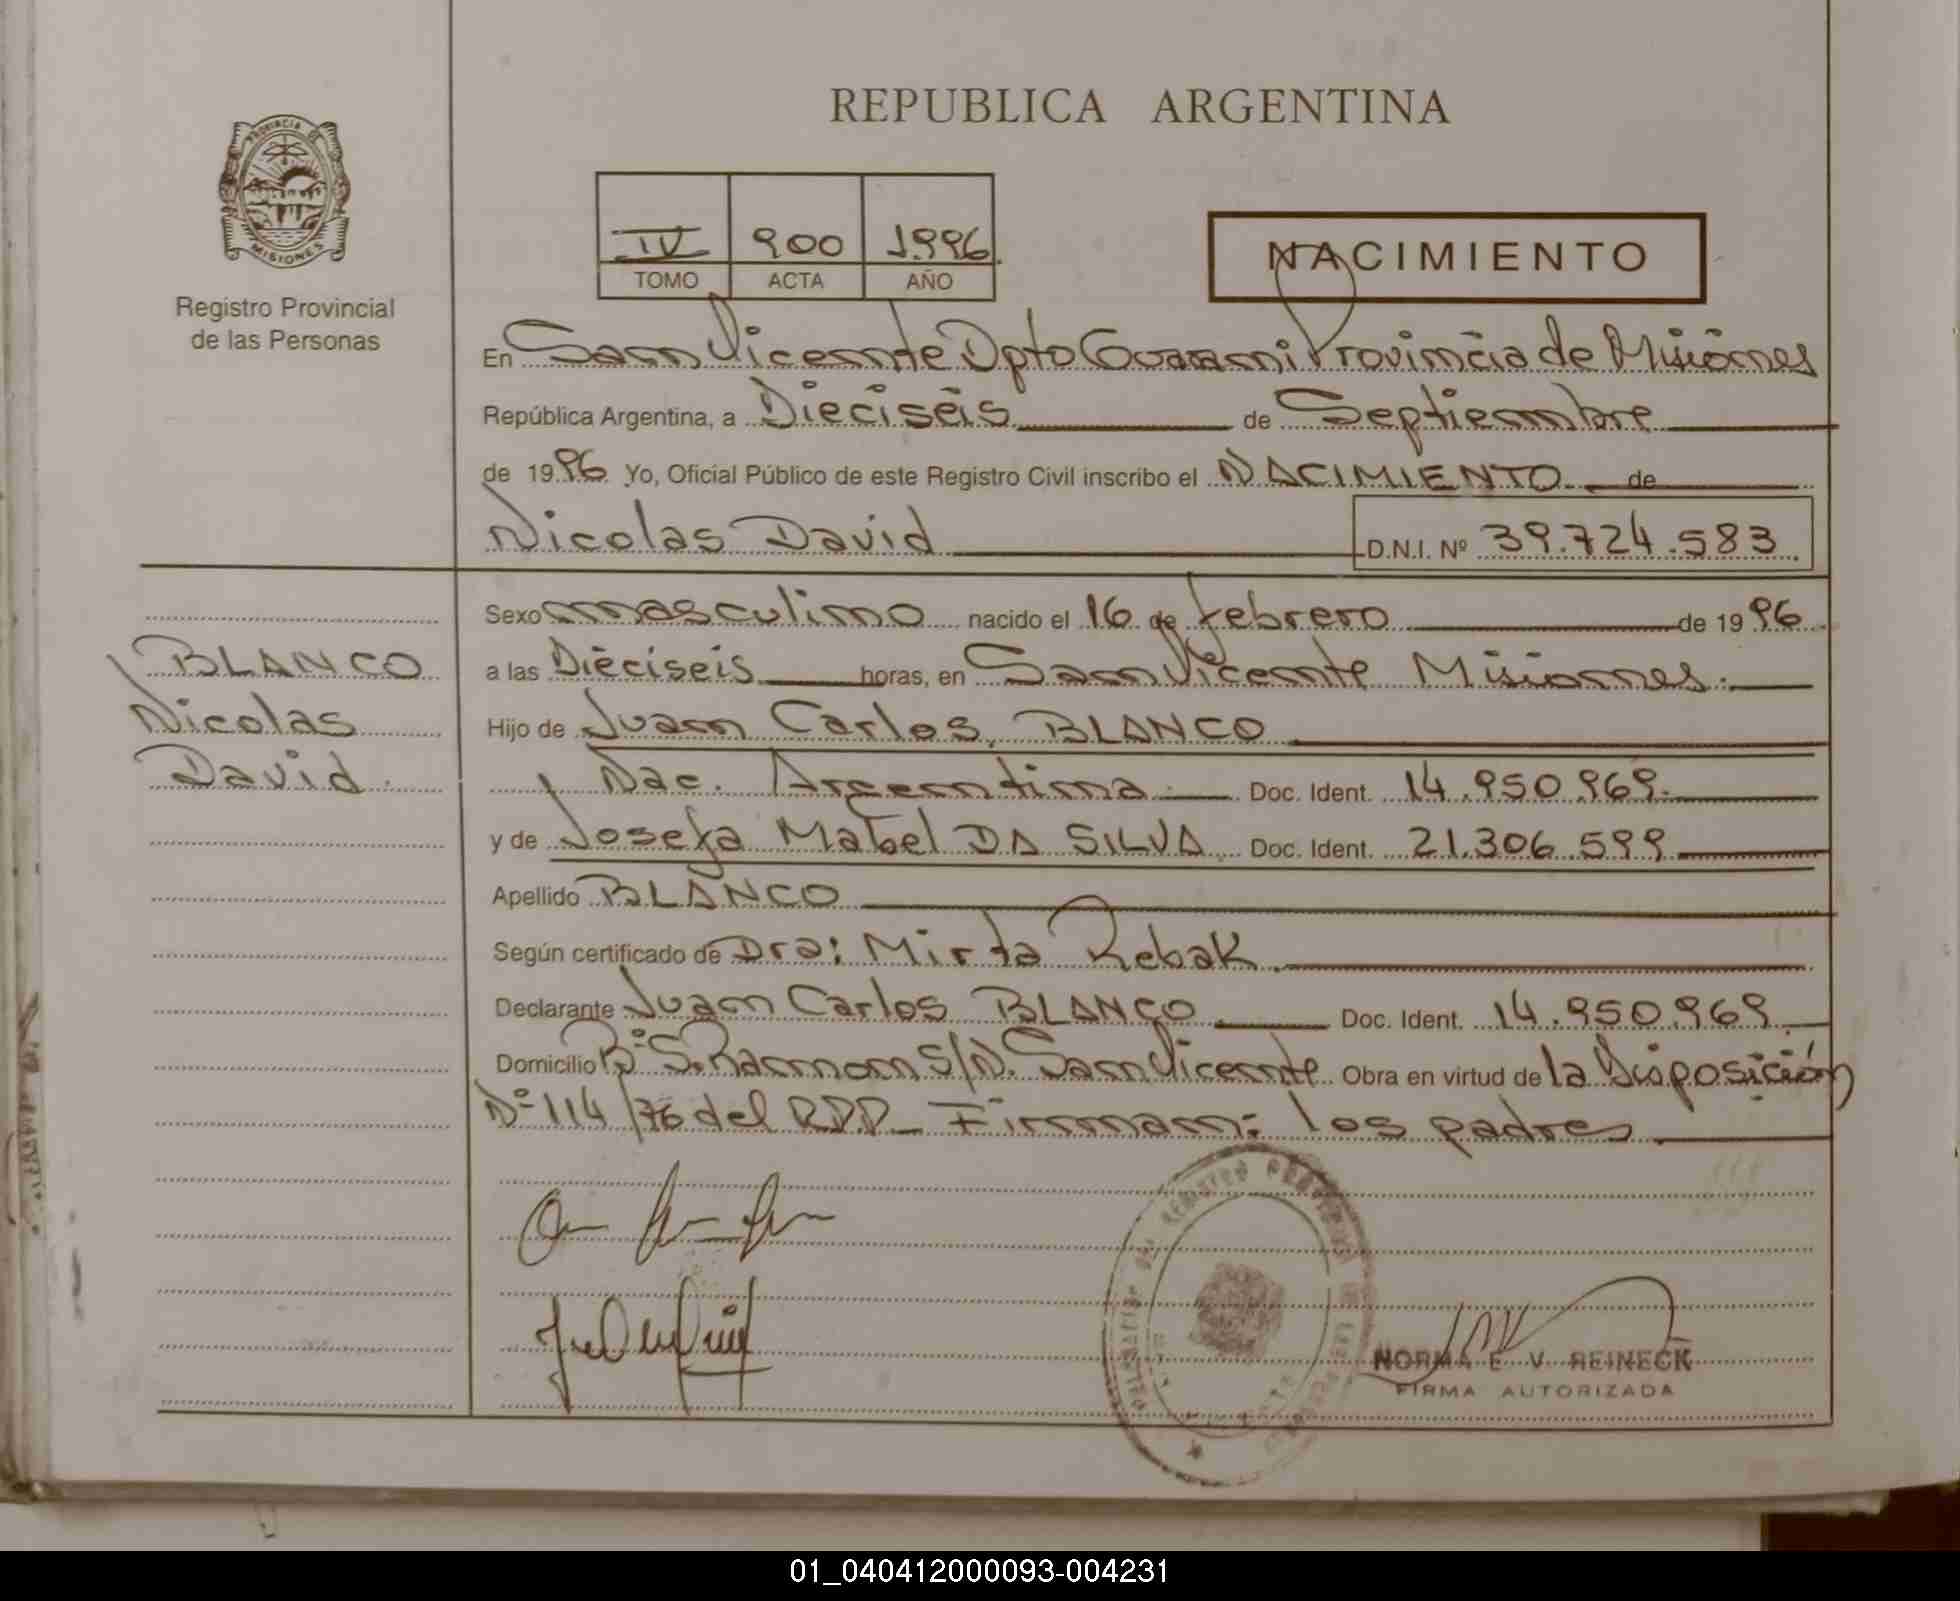 REPUBLICA ARGENTINA
PROVINCIA DE
MISIONES
Registro Provincial
de las Personas
IV 900 1.996.
TOMO ACTA AÑO
NACIMIENTO
En San Vicente Dpto Guarani Provincia de Misiones
República Argentina, a Dieciseis de Septiembre
de 1996 Yo, Oficial Público de este Registro Civil inscribo el NACIMIENTO de
Nicolas David D.N.I. Nº 39.724.583.
Sexo masculino nacido el 16 de febrero de 1996
a las Dieciseis horas, en San Vicente Misiones.
Hijo de Juan Carlos, BLANCO
Nac. Argentina. Doc. Ident. 14.950.969.
y de Josefa Mabel DA SILVA Doc. Ident. 21.306.599
Apellido BLANCO
Según certificado de Dra: Mirta Rebak
Declarante Juan Carlos BLANCO Doc. Ident. 14.950.969.
Domicilio Bº S. Ramon S/N. San Vicente Obra en virtud de la Disposición
Nº 114/76 del RPP_ Firman: los padres
BLANCO
Nicolas
David.
NORMA E. V. REINECK
FIRMA AUTORIZADA
01_040412000093-004231